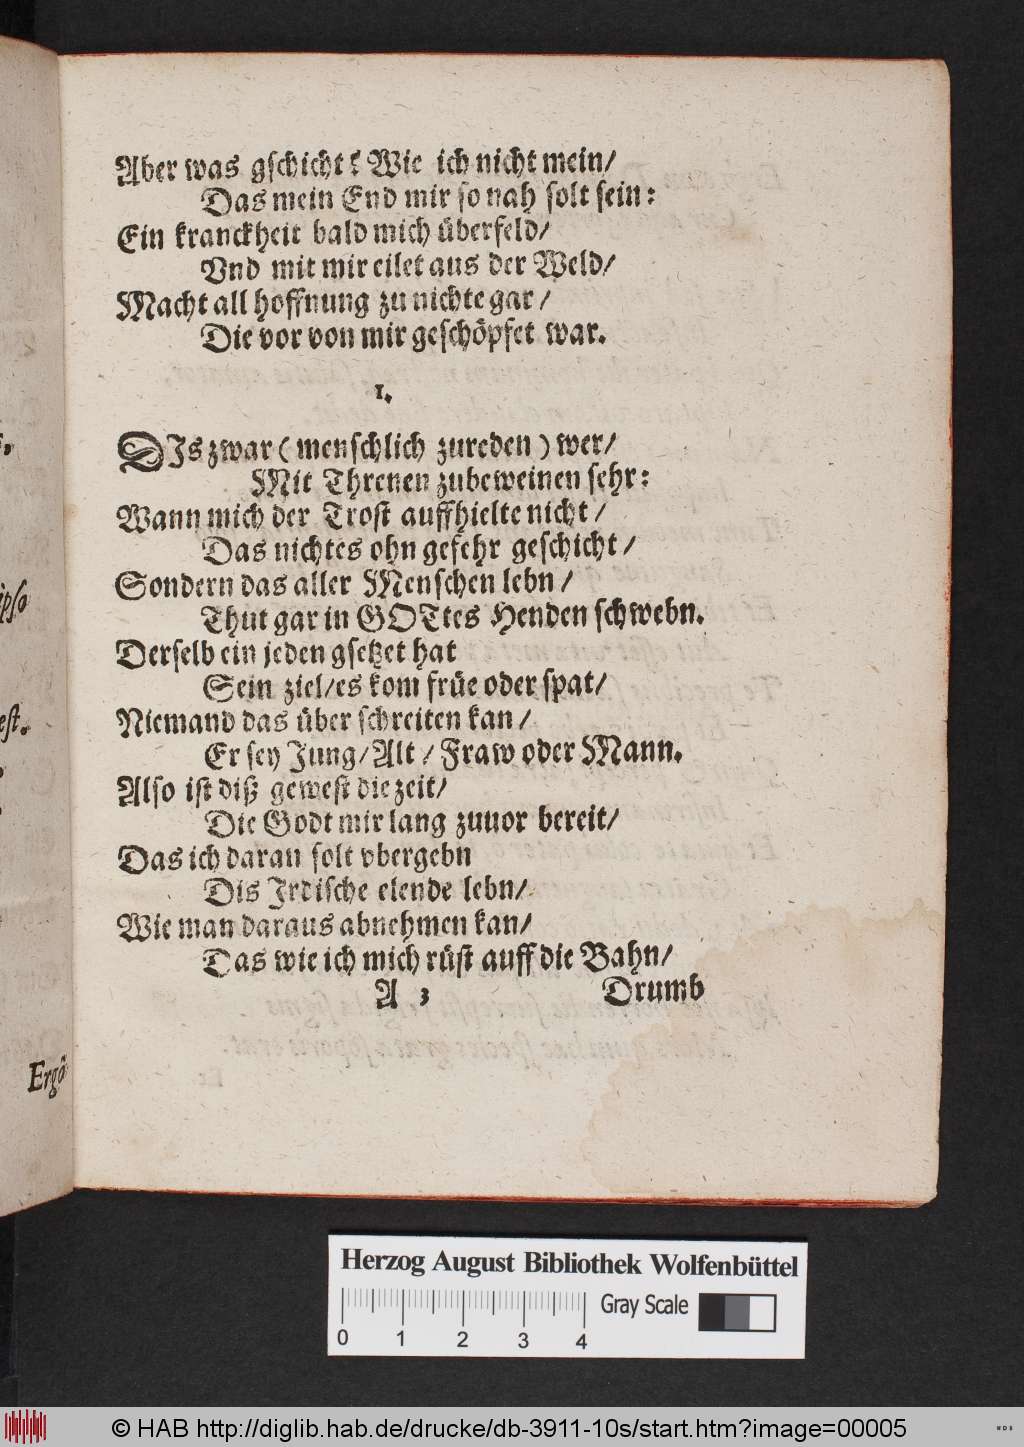 Aber was gschicht? Wie ich nicht mein/
Das mein End mir so nah solt sein:
Ein kranckheit bald mich überfeld/
Vnd mit mir eilet aus der Weld/
Macht all hoffnung zu nichte gar/
Die vor von mir geschöpfet war.
1.
DIs zwar (menschlich zureden) wer/
Mit Threnen zubeweinen sehr:
Wann mich der Trost auffhielte nicht/
Das nichtes ohn gefehr geschicht/
Sondern das aller Menschen lebn/
Thut gar in GOTtes Henden schwebn.
Derselb ein jeden gsetzet hat
Sein ziel/es kom früe oder spat/
Niemand das über schreiten kan/
Er sey Jung/Alt/Fraw oder Mann.
Also ist diß gewest die zeit/
Die Godt mir lang zuuor bereit/
Das ich daran solt vbergebn
Dis Irdische elende lebn/
Wie man daraus abnehmen kan/
Das wie ich mich rüst auff die Bahn/
A 3 Drumb
ipso
est.
Ergò
Herzog August Bibliothek Wolfenbüttel
Gray Scale
0 1 2 3 4
© HAB http://diglib.hab.de/drucke/db-3911-10s/start.htm?image=00005